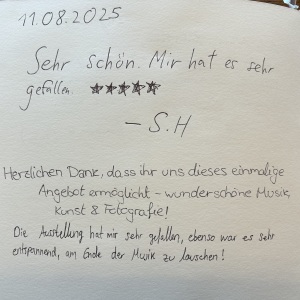 11.08.2025
Sehr schön. Mir hat es sehr
gefallen. ★★★★★
– S.H
Herzlichen Dank, dass ihr uns dieses einmalige
Angebot ermöglicht – wunderschöne Musik,
Kunst & Fotografie!
Die Ausstellung hat mir sehr gefallen, ebenso war es sehr
entspannend, am Ende der Musik zu lauschen!